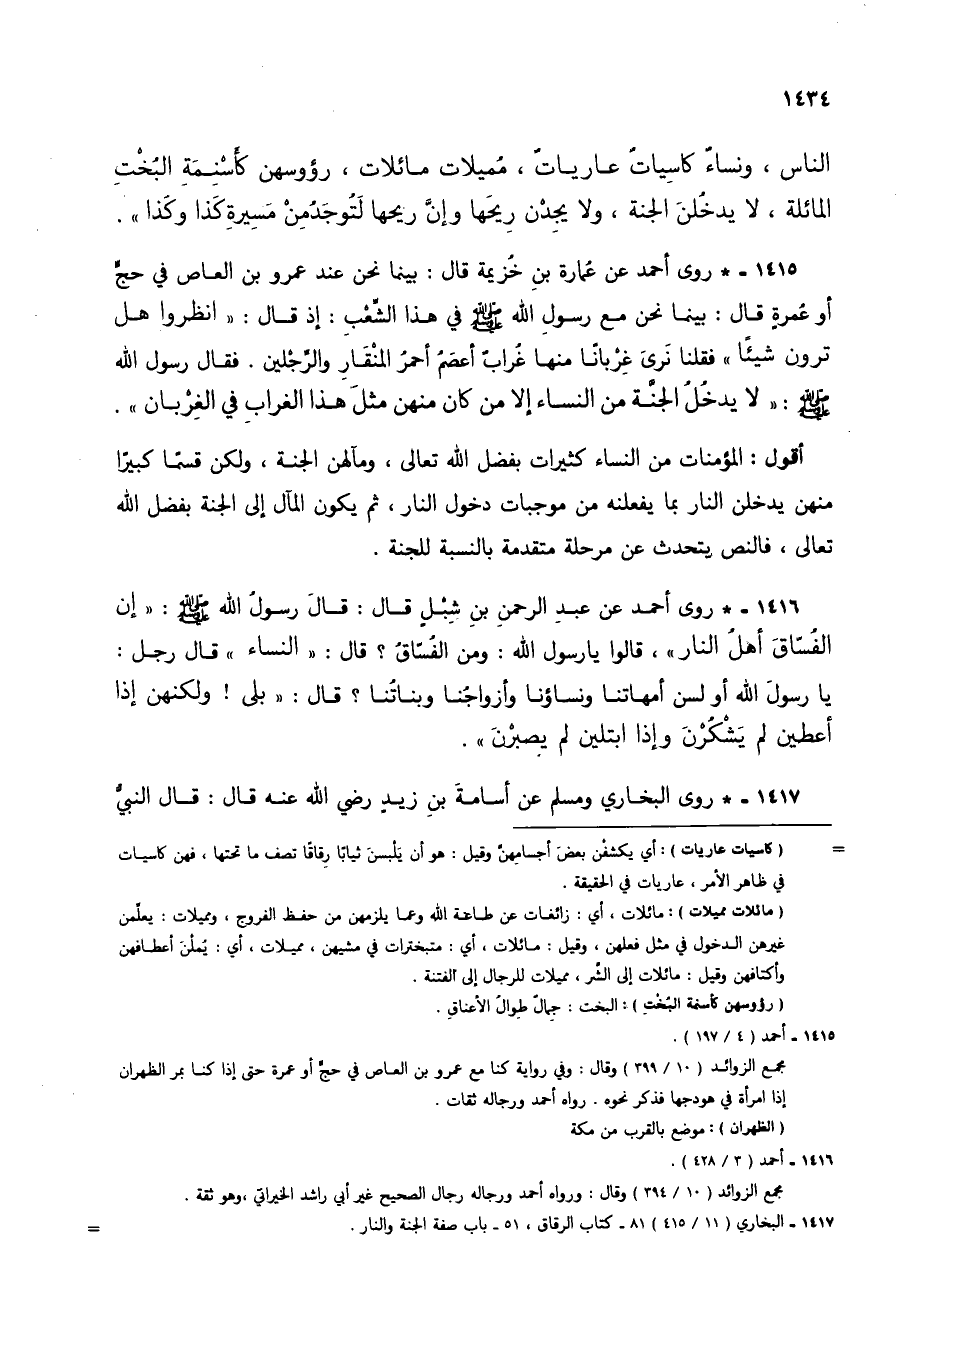 ١٤٣٤
الناس ، ونساءٌ كاسِياتٌ عـاريـاتٌ ، مُميلات مـائلات ، رؤوسهن كَأَسْنِـمَةِ البُخْتِ
المائلة ، لا يدخُلنَ الجنة ، ولا يجِدْن ريحَها وإنَّ ريحَها لَتُوجَدُمِنْ مَسيرةِ كَذا وكَذا » .
١٤١٥ - * روى أحمد عن عُمارة بنِ خُزيمة قال : بينما نحن عند عمرو بن العـاص في حجٍّ
أو عُمرةٍ قـال : بينمـا نحن مـع رسـولِ الله ﷺ في هـذا الشِّعْبِ : إذ قـال : « انظـروا هـل
ترون شيئًا » فقلنا نَرىَ غِرْبانًـا منهـا غُرابٌ أعصَمُ أحمرُ المِنْقَـارِ والرِّجْلين . فقـال رسول الله
ﷺ : « لا يدخُلُ الجنَّـة من النسـاء إلا من كان منهن مثلَ هـذا الغراب في الغِرْبـان » .
أقول : المؤمنات من النساء كثيرات بفضل الله تعالى ، ومآلهن الجنـة ، ولكن قسمًـا كبيرًا
منهن يدخلن النار بما يفعلنه من موجبات دخول النار ، ثم يكون المآل إلى الجنة بفضل الله
تعالى ، فالنص يتحدث عن مرحلة متقدمة بالنسبة للجنة .
١٤١٦ - * روى أحمـد عن عبـدِ الرحمنِ بنِ شِبْـلٍ قـال : قـالَ رسولُ الله ﷺ : « إن
الفُسّاقَ أهلُ النار » ، قالوا يارسول الله : ومن الفُسّاقُ ؟ قال : « النساء » قـال رجـل :
يا رسولَ الله أو لسن أمهاتنـا ونسـاؤنـا وأزواجُنـا وبنـاتُنـا ؟ قـال : « بلى ! ولكنهن إذا
أعطين لم يَشْكُرْنَ وإذا ابتلين لم يصبرْنَ » .
١٤١٧ - * روى البخـاري ومسلم عن أسامـةَ بنِ زيـدٍ رضي الله عنـه قـال : قـال النبيُّ
= ( كاسيات عاريات ) : أي يكشفْن بعضَ أجسامِهنَّ وقيل : هو أن يَلْبسنَ ثيابًا رِقاقًا تصف ما تحتها ، فهن كاسيـات
في ظاهر الأمر ، عاريات في الحقيقة .
( مائلات مميلات ) : مـائلات ، أي : زائغـات عن طـاعـة الله وعمـا يلزمهن من حفـظ الفروج ، ومميلات : يعلّمن
غيرهن الـدخول في مثل فعلهن ، وقيل : مـائلات ، أي : متبخترات في مشيهن ، مميـلات ، أي : يُملْنَ أعطـافهن
وأكتافهن وقيل : مائلات إلى الشَّر ، مميلات للرجال إلى الفتنة .
( رؤوسهن كأسنمة البُخْتِ ) : البخت : جِمالٌ طوالُ الأعناقِ .
١٤١٥ - أحمد ( ٤ / ١٩٧ ) .
مجمع الزوائـد ( ١٠ / ٣٩٩ ) وقال : وفي رواية كنا مع عمرو بن العـاص في حجٍّ أو عمرة حتى إذا كنـا بمر الظهران
إذا امرأة في هودجها فذكر نحوه . رواه أحمد ورجاله ثقات .
( الظهران ) : موضع بالقرب من مكة
١٤١٦ - أحمد ( ٣ / ٤٢٨ ) .
مجمع الزوائد ( ١٠ / ٣٩٤ ) وقال : ورواه أحمد ورجاله رجال الصحيح غير أبي راشد الحبراني ،وهو ثقة .
١٤١٧ - البخاري ( ١١ / ٤١٥ ) ٨١ - كتاب الرقاق ، ٥١ - باب صفة الجنة والنار . =